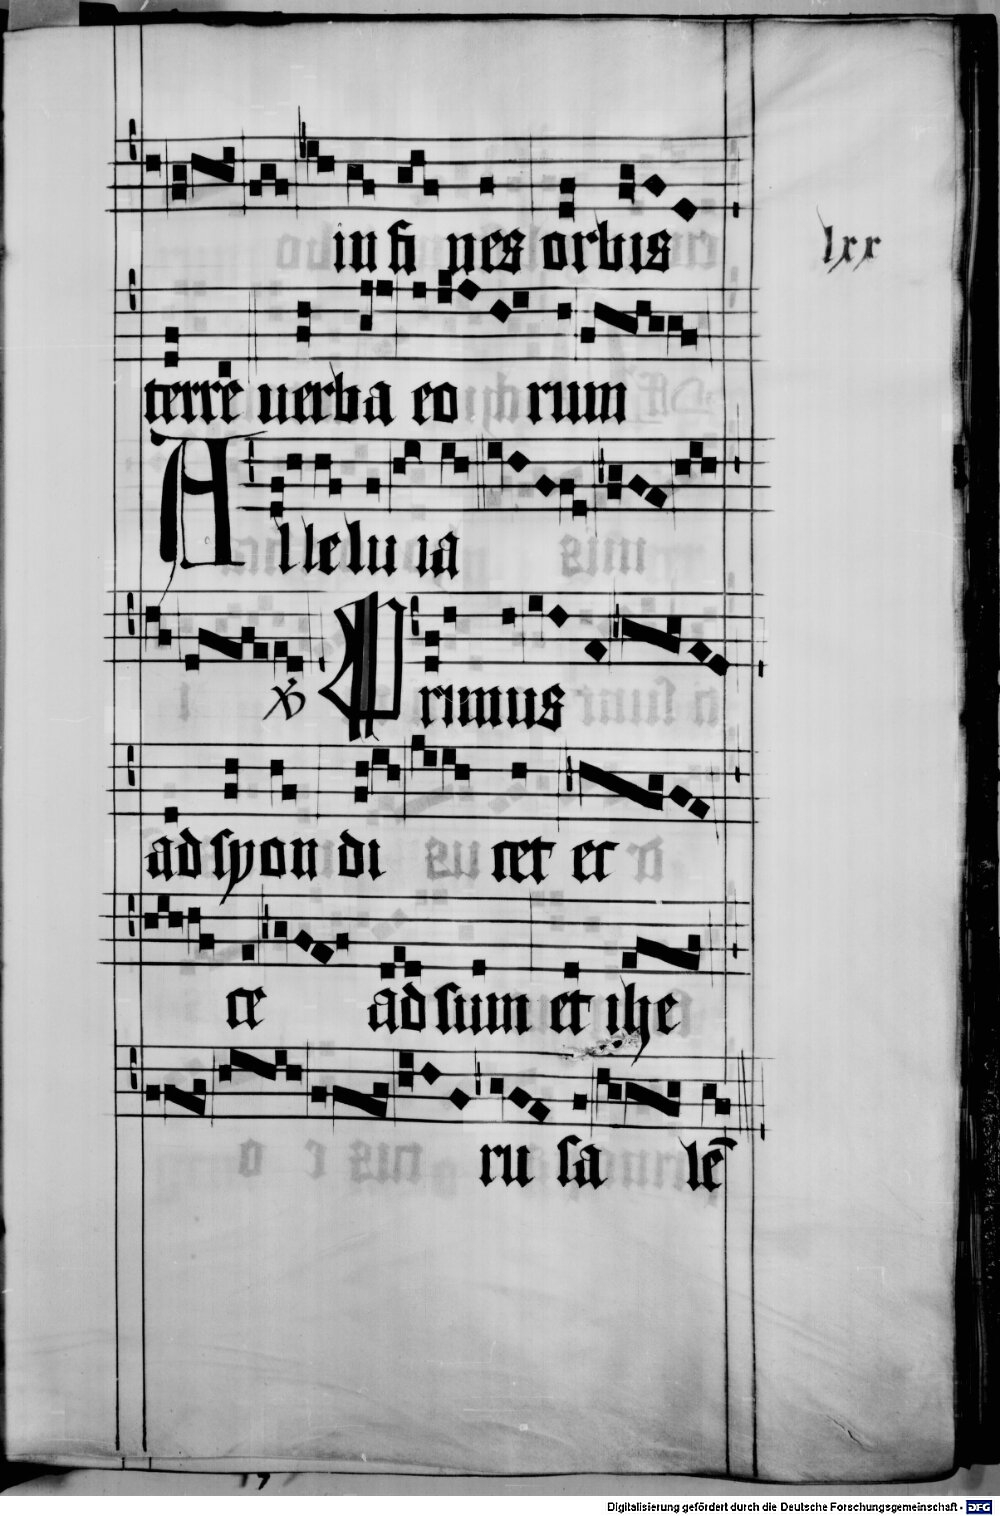 in fi nes orbis
lxx
terre uerba eo rum
Alleluia
Primus
ad syon di cet ec
ce adsum et ihe
ru sa lē
Digitalisierung gefördert durch die Deutsche Forschungsgemeinschaft - DFG